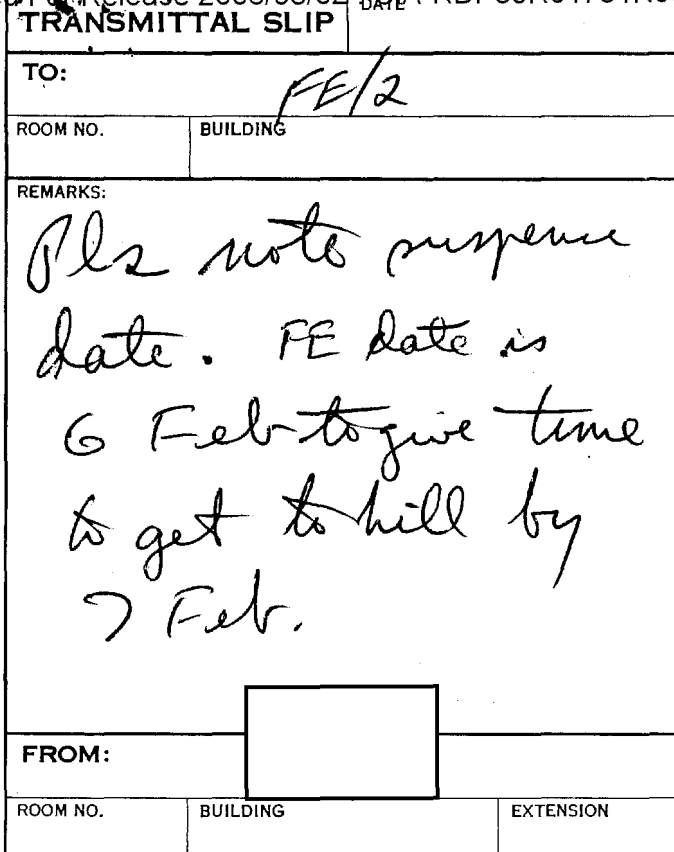 Release
DATE
TRANSMITTAL SLIP
TO:
FE/2
ROOM NO. BUILDING
REMARKS:
Pls note suspense
date. FE date is
6 Feb to give time
to get to hill by
7 Feb.
FROM:
ROOM NO. BUILDING EXTENSION